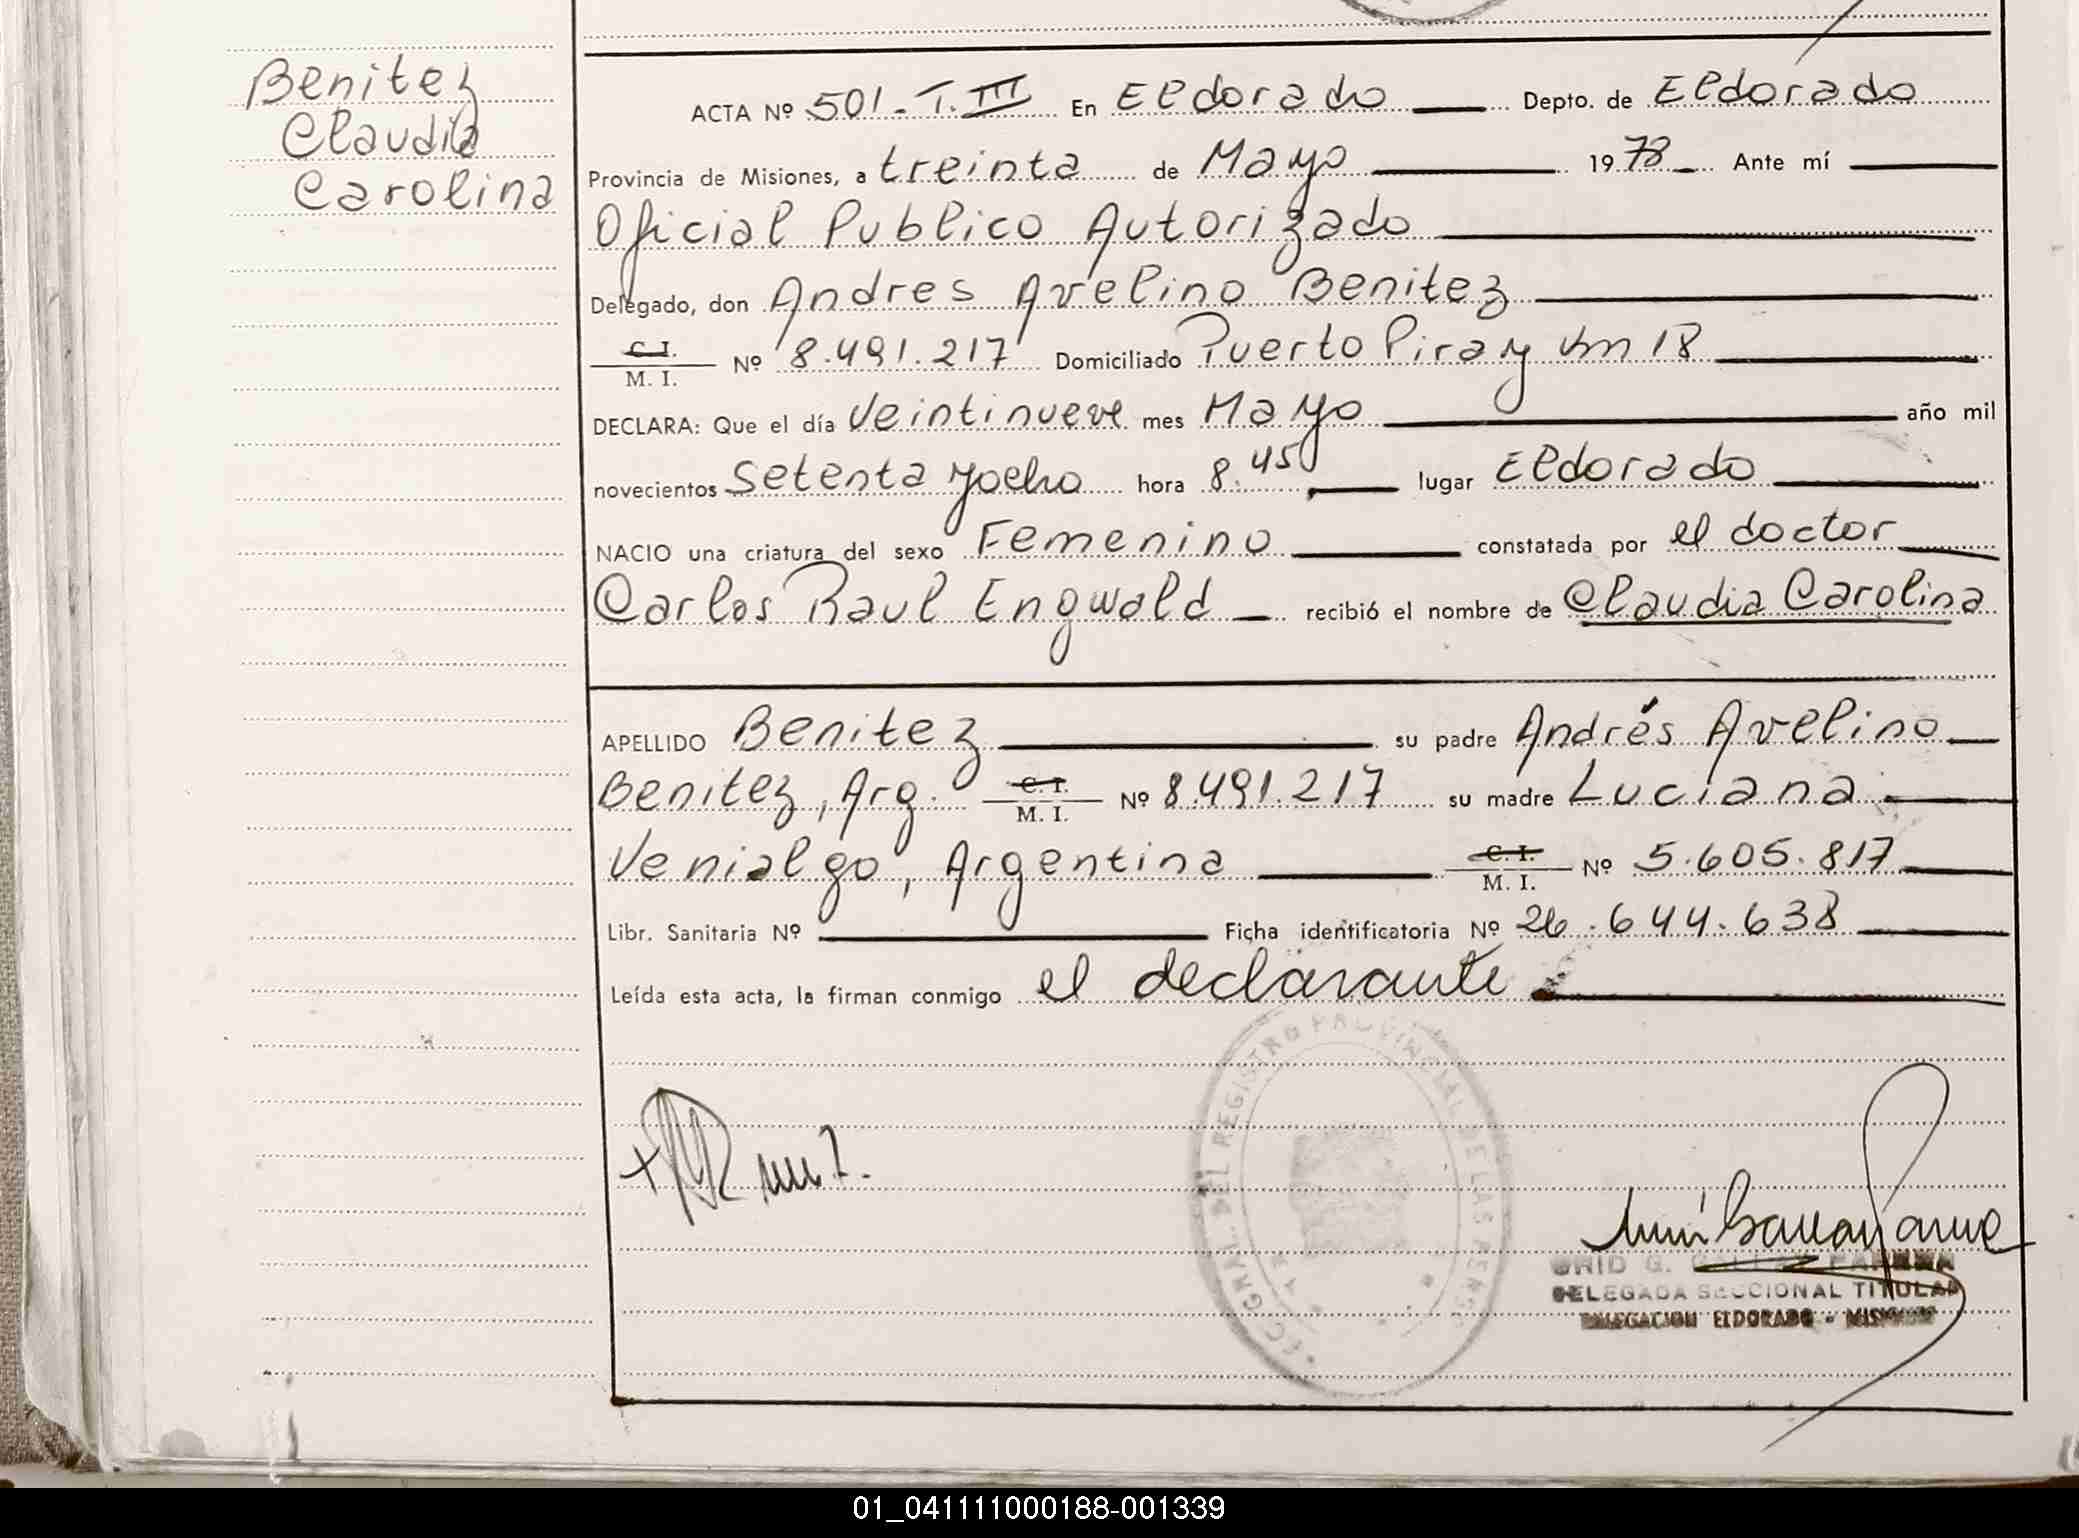 Benitez
Claudia
Carolina
ACTA Nº 501 - T. III En Eldorado Depto. de Eldorado
Provincia de Misiones, a treinta de Mayo 1978 Ante mí
Oficial Publico Autorizado
Delegado, don Andres Avelino Benitez
C. I.
M. I. Nº 8.491.217 Domiciliado Puerto Piray km 18
DECLARA: Que el día Veintinueve mes Mayo año mil
novecientos setenta y ocho hora 8.45 lugar Eldorado
NACIO una criatura del sexo Femenino constatada por el doctor
Carlos Raul Engwald recibió el nombre de Claudia Carolina
APELLIDO Benitez su padre Andrés Avelino
Benitez, Arg. C. I.
M. I. Nº 8.491.217 su madre Luciana
Venialgo, Argentina C. I.
M. I. Nº 5.605.817
Libr. Sanitaria Nº Ficha identificatoria Nº 26.644.638
Leída esta acta, la firman conmigo el declarante
GRAL. DEL REGISTRO PROVINCIAL DE LAS PERS
G.
DELEGADA SECCIONAL TITULAR
DELEGACION ELDORADO - MISIONES
01_041111000188-001339